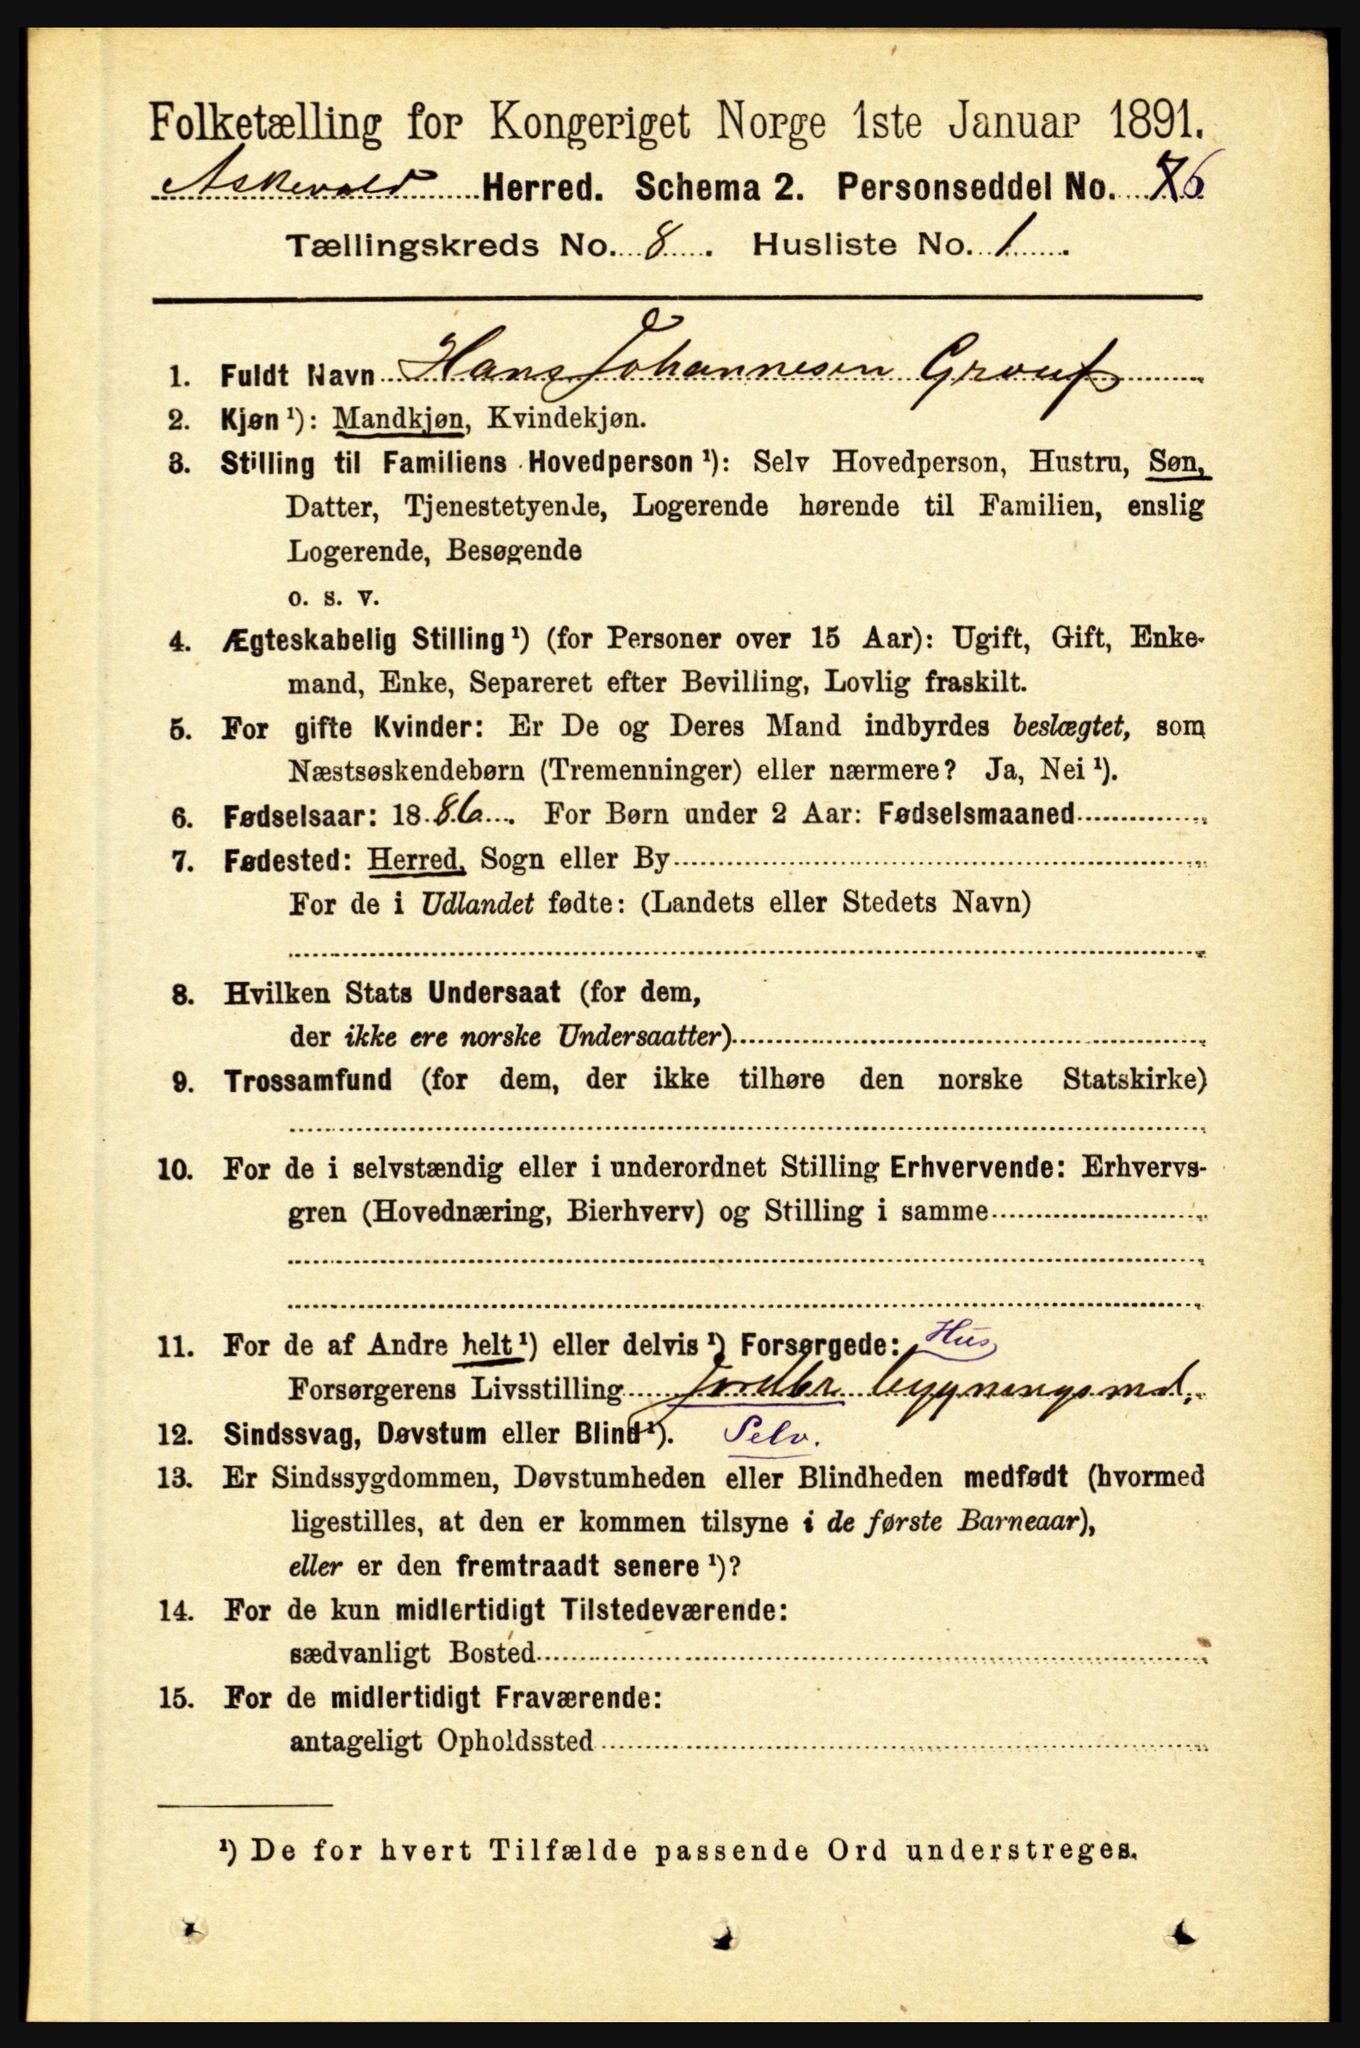 Folketælling for Kongeriget Norge 1ste Januar 1891.
Askevold Herred. Schema 2. Personseddel No. 6
Tællingskreds No. 8. Husliste No. 1.
1. Fuldt Navn Hans Johannesen
2. Kjøn ¹): Mandkjøn, Kvindekjøn.
3. Stilling til Familiens Hovedperson ¹): Selv Hovedperson, Hustru, Søn,
Datter, Tjenestetyende, Logerende hørende til Familien, enslig
Logerende, Besøgende
o. s. v.
4. Ægteskabelig Stilling ¹) (for Personer over 15 Aar): Ugift, Gift, Enke-
mand, Enke, Separeret efter Bevilling, Lovlig fraskilt.
5. For gifte Kvinder: Er De og Deres Mand indbyrdes beslægtet, som
Næstsøskendebørn (Tremenninger) eller nærmere? Ja, Nei ¹).
6. Fødselsaar: 1886. For Børn under 2 Aar: Fødselsmaaned
7. Fødested: Herred, Sogn eller By
For de i Udlandet fødte: (Landets eller Stedets Navn)
8. Hvilken Stats Undersaat (for dem,
der ikke ere norske Undersaatter)
9. Trossamfund (for dem, der ikke tilhøre den norske Statskirke)
10. For de i selvstændig eller i underordnet Stilling Erhvervende: Erhvervs-
gren (Hovednæring, Bierhverv) og Stilling i samme
11. For de af Andre helt ¹) eller delvis ¹) Forsørgede: Hus
Forsørgerens Livsstilling Jordbr bygningsmd.
12. Sindssvag, Døvstum eller Blind ¹). Selv.
13. Er Sindssygdommen, Døvstumheden eller Blindheden medfødt (hvormed
ligestilles, at den er kommen tilsyne i de første Barneaar),
eller er den fremtraadt senere ¹)?
14. For de kun midlertidigt Tilstedeværende:
sædvanligt Bosted
15. For de midlertidigt Fraværende:
antageligt Opholdssted
¹) De for hvert Tilfælde passende Ord understreges.